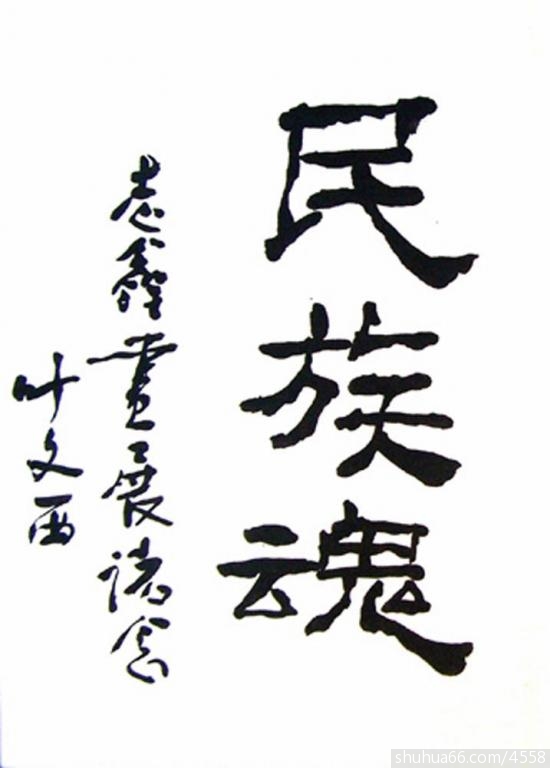 民族魂
志鑫畫展誌念
叶文西
shuhua66.com/4558